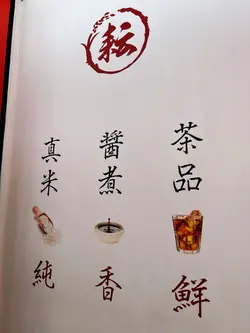 耘
茶品
鮮
醬煮
香
真米
純